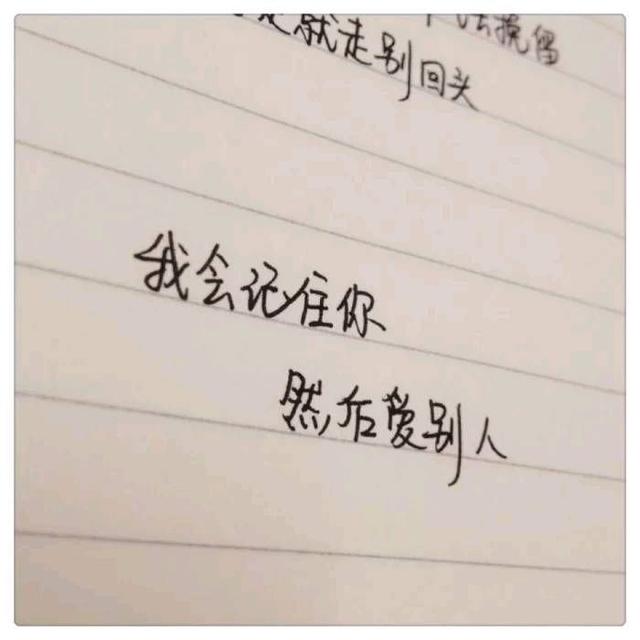 挽留
就走别回头
我会记住你
然后爱别人